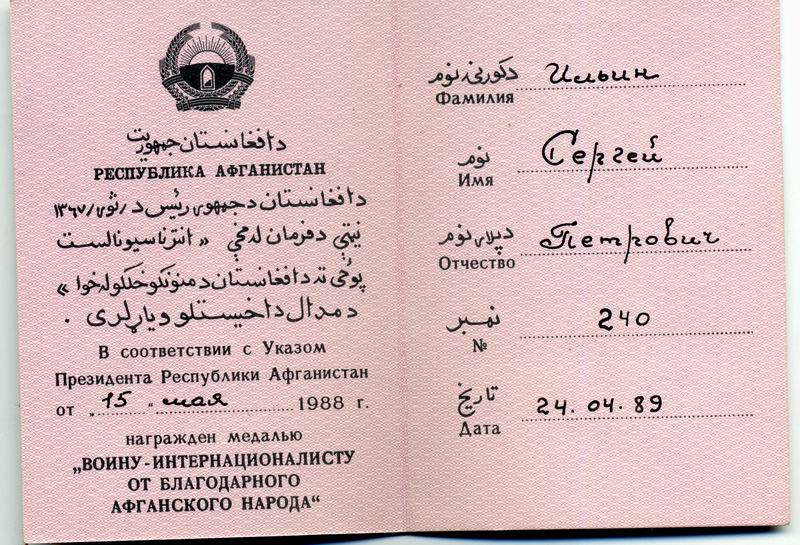 دافغانستان جمهوریت
РЕСПУБЛИКА АФГАНИСТАН
دافغانستان دجمهوری رئیس د /ثور/ ۱۳۶۷
نیټې دفرمان له مخې « انترناسیونالست
پوځی ته دافغانستان دمنونکو خلکو له خوا »
دمدال داخیستلو ویاړ لری .
В соответствии с Указом
Президента Республики Афганистан
от „15“ мая 1988 г.
награжден медалью
„ВОИНУ-ИНТЕРНАЦИОНАЛИСТУ
ОТ БЛАГОДАРНОГО
АФГАНСКОГО НАРОДА“
دکورنۍ نوم Ильин
Фамилия
نوم Сергей
Имя
دپلار نوم Петрович
Отчество
نمبر 240
№
تاریخ 24.04.89
Дата